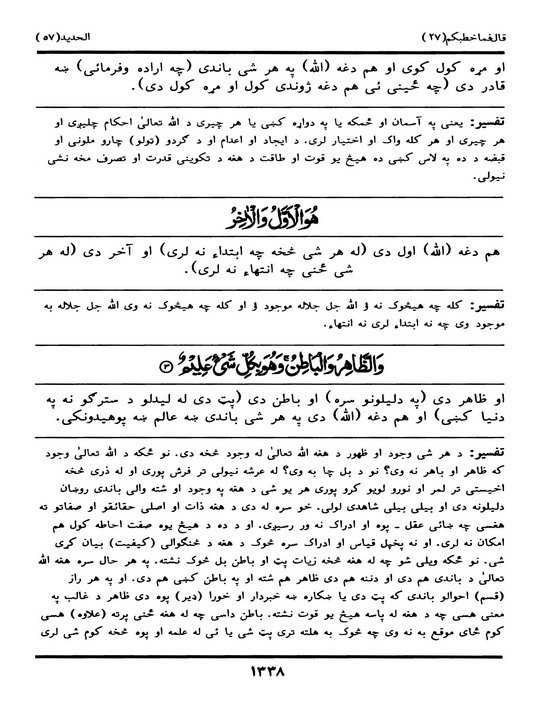 قال فما خطبكم(٢٧)
الحديد(٥٧)
او مړه کول کوی او هم دغه (الله) په هر شی باندی (چه اراده وفرمائی) ښه
قادر دی (چه ځینی ئی هم دغه ژوندی کول او مړه کول دی).
تفسیر: یعنی په آسمان او ځمکه یا په دواړه کښی یا هر چیری د الله تعالیٰ احکام چلیږی او
هر چیری او هر کله واک او اختیار لری. د ایجاد او اعدام او د گردو (تولو) چارو ملونی او
قبضه د ده په لاس کښی ده هیڅ یو قوت او طاقت د هغه د تکوینی قدرت او تصرف مخه نشی
نیولی.
هُوَ الْاَوَّلُ وَالْاٰخِرُ
هم دغه (الله) اول دی (له هر شی څخه چه ابتداء نه لری) او آخر دی (له هر
شی ځنی چه انتهاء نه لری).
تفسیر: کله چه هیڅوک نه ؤ الله جل جلاله موجود ؤ او کله چه هیڅوک نه وی الله جل جلاله به
موجود وی چه نه ابتداء لری نه انتهاء.
وَالظَّاهِرُ وَالْبَاطِنُ ۚ وَهُوَ بِكُلِّ شَیْءٍ عَلِیْمٌ ﴿٣﴾
او ظاهر دی (په دلیلونو سره) او باطن دی (پټ دی له لیدلو د سترگو نه په
دنیا کښی) او هم دغه (الله) دی په هر شی باندی ښه عالم ښه پوهیدونکی.
تفسیر: د هر شی وجود او ظهور د هغه الله تعالیٰ له وجود څخه دی. نو ځکه د الله تعالیٰ وجود
که ظاهر او باهر نه وی؟ نو د بل چا به وی؟ له عرشه نیولی تر فرش پوری او له ذری څخه
اخیستی تر لمر او نورو لویو کرو پوری هر یو شی د هغه په وجود او شته والی باندی روڼان
دلیلونه دی او بیلی بیلی شاهدی لولی. خو سره له دی د هغه ذات او اصلی حقائقو او صفاتو ته
هغسی چه ښائی عقل ـ پوه او ادراک نه ور رسیږی. او د ده د هیڅ یوه صفت احاطه کول هم
امکان نه لری. او نه پخپل قیاس او ادراک سره څوک د هغه د څنگوالی (کیفیت) بیان کړی
شی. نو ځکه ویلی شو چه له هغه څخه زیات پټ او باطن بل څوک نشته. په هر حال سره هغه الله
تعالیٰ د باندی هم دی او دننه هم دی ظاهر هم شته او په باطن کښی هم دی. او په هر راز
(قسم) احوالو باندی که پټ دی یا ښکاره ښه خبردار او خورا (ډیر) پوه دی ظاهر د غالب په
معنی هسی چه د هغه له پاسه هیڅ یو قوت نشته. باطن داسی چه له هغه ځنی پرته (علاوه) هسی
کوم ځای موقع به نه وی چه څوک به هلته تری پټ شی یا ئی له علمه او پوه څخه کوم شی لری
١٣٣٨